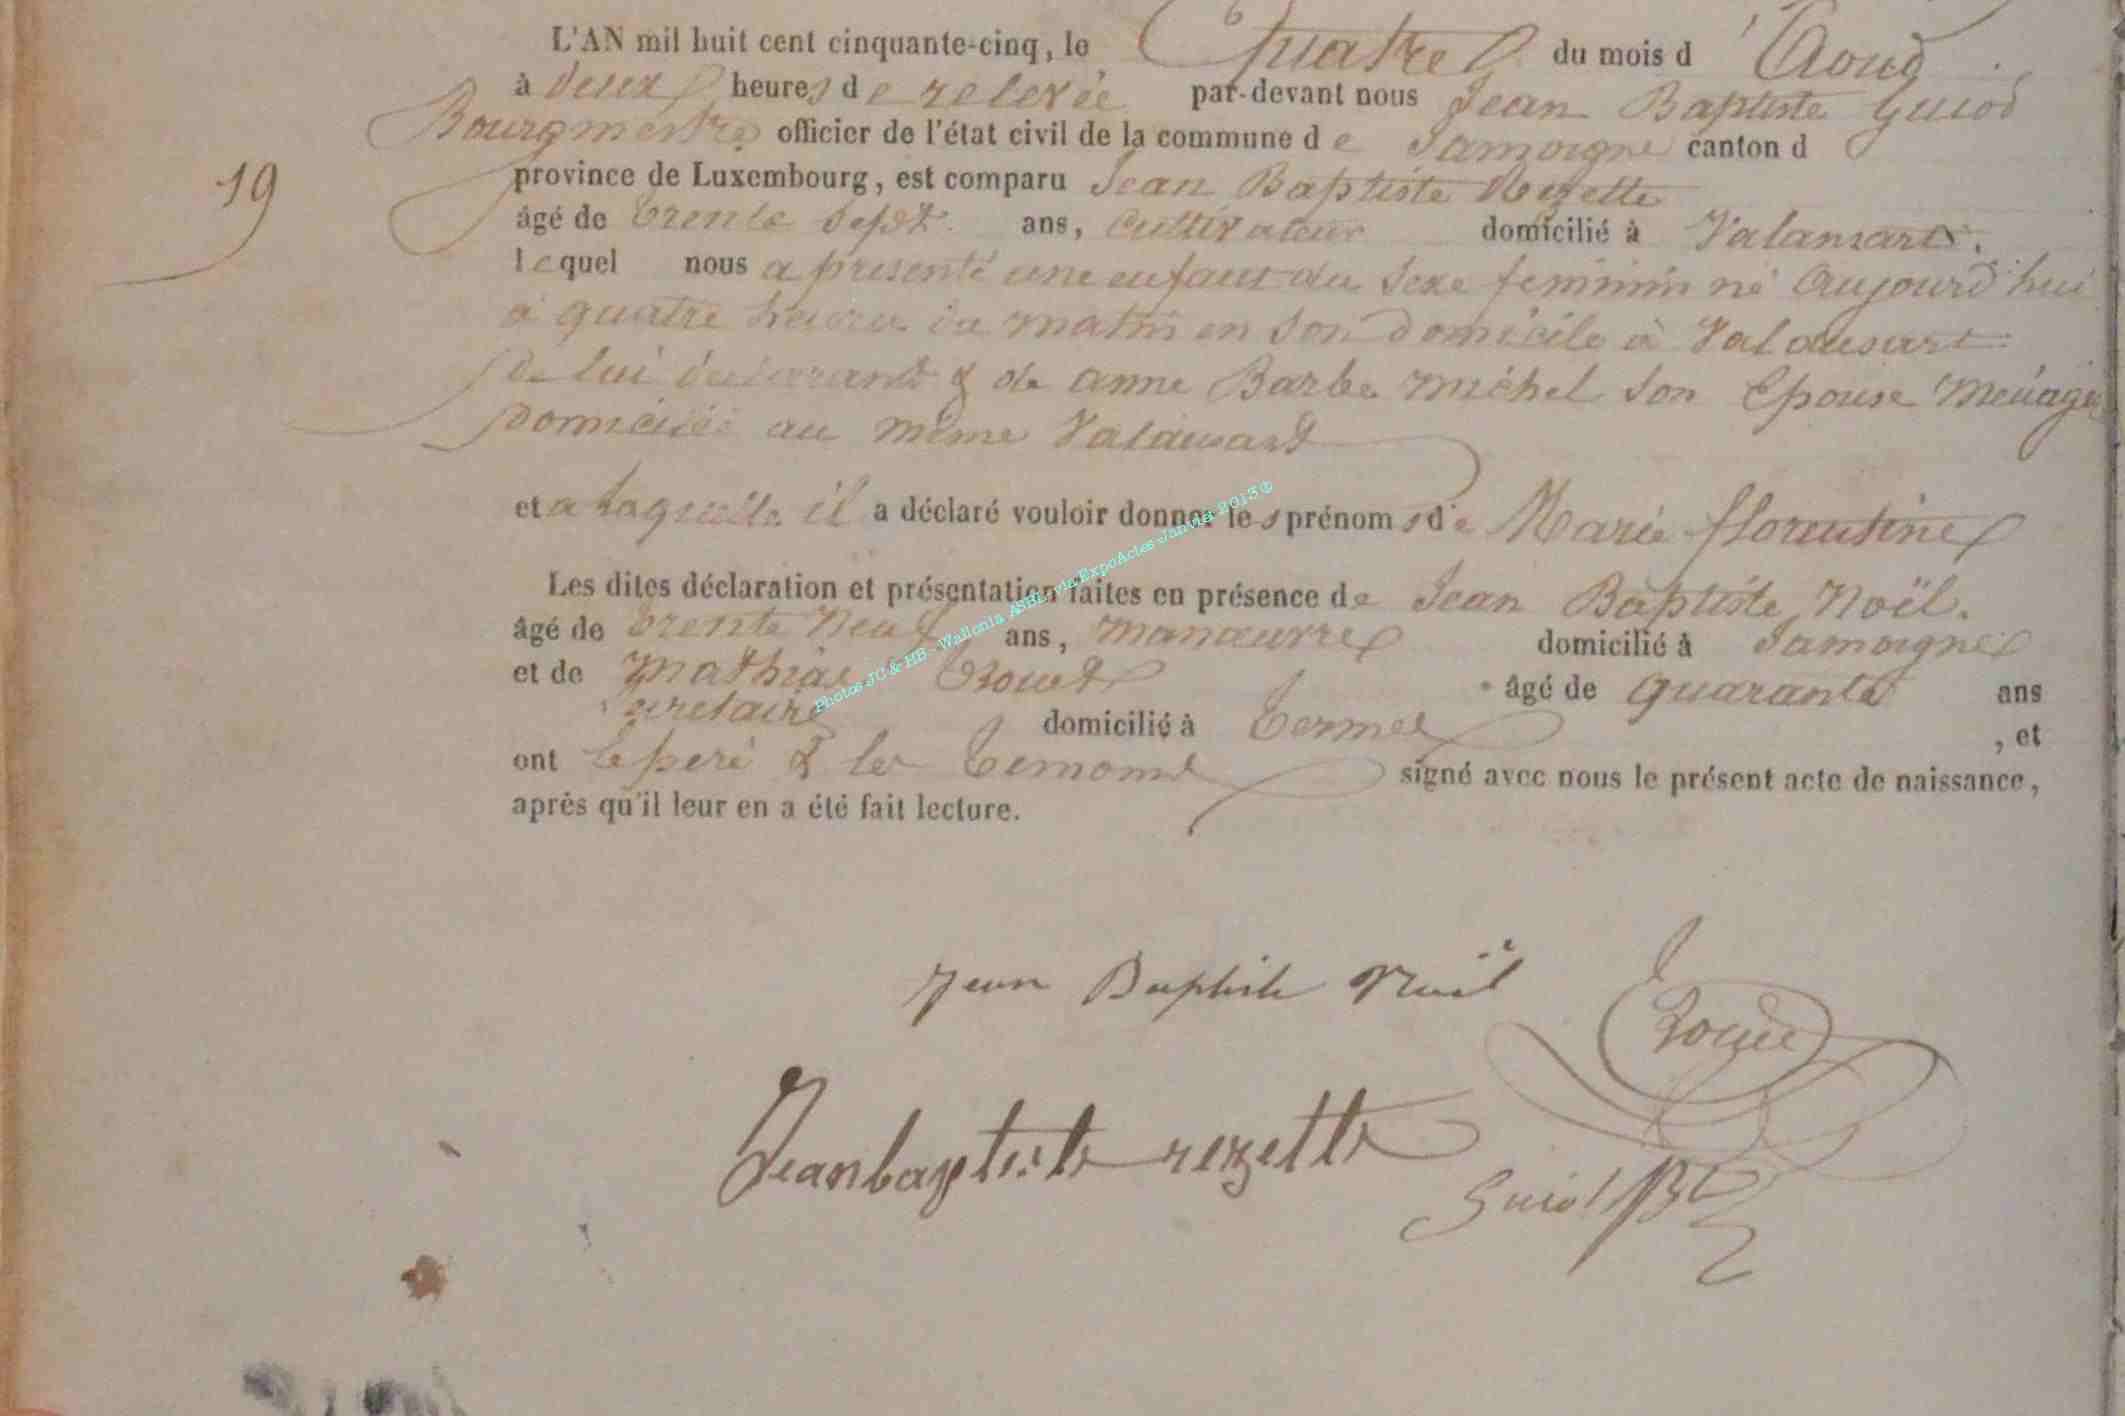 L'AN mil huit cent cinquante-cinq, le Quatre du mois d'Aout
à deux heures de relevée par-devant nous Jean Baptiste Guiot
Bourgmestre officier de l'état civil de la commune de Jamoigne canton d
19
province de Luxembourg, est comparu Jean Baptiste Rezette
âgé de trente sept ans, cultivateur domicilié à Valansart.
lequel nous a présenté une enfant du sexe feminin né aujourd'hui
à quatre heures du matin en son domicile à Valansart
de lui déclarant & de anne Barbe michel son Epouse Ménagère
domiciliée au même Valansart
et a laquelle il a déclaré vouloir donner les prénoms de Marie florentine
Les dites déclaration et présentation faites en présence de Jean Baptiste Noël.
âgé de trente neuf ans, manœuvre domicilié à Jamoigne
et de Mathias Rouet âgé de quarante ans
secretaire domicilié à Termes , et
ont le père & les temoins signé avec nous le présent acte de naissance,
après qu'il leur en a été fait lecture.
Photos JC & HB - Wallonia ASBL via ExpoActes - Janvier 2013 ©
Jean Baptiste Noël
Jeanbaptiste rezette
Guiot